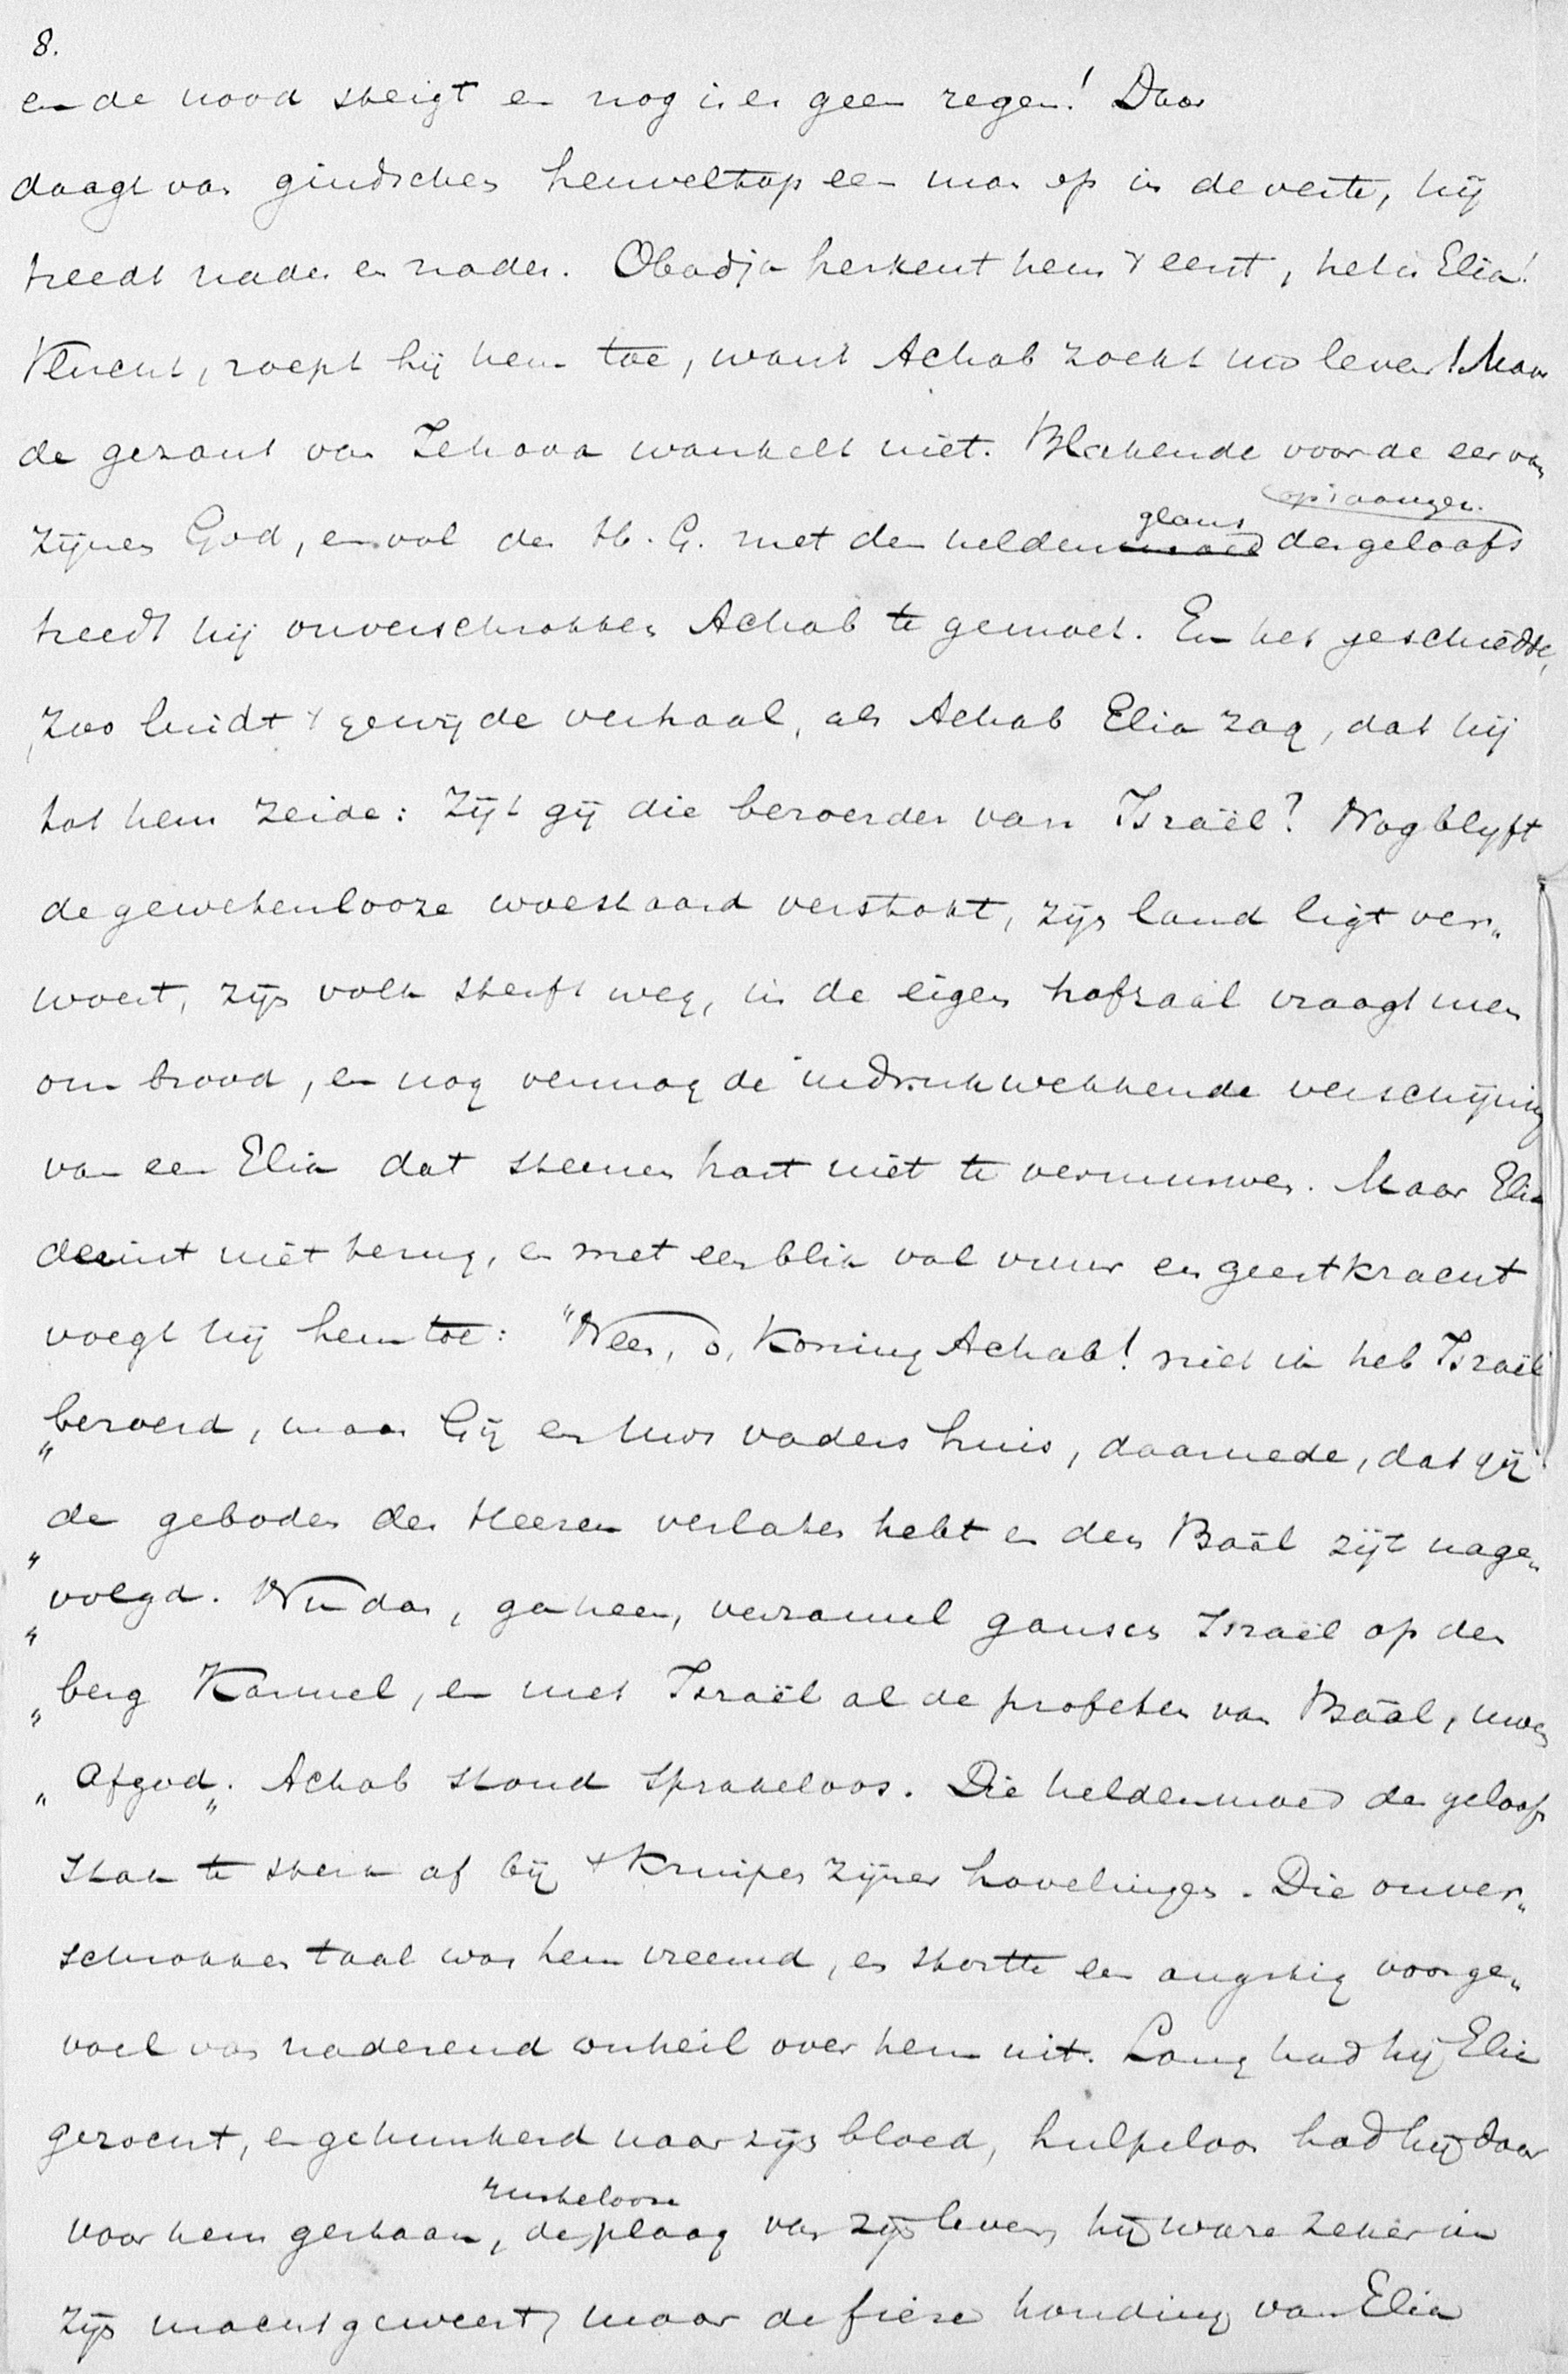 8.
en de nood steigt en nog is er geen regen! Daar
daagt van gindschen heuveltop een man op in de verte, hij
treedt nader en nader. Obadja herkent hem 't eerst, het is Elia!
Vlucht, roept hij hem toe, want Achab zoekt uw leven! Maar
de gezant van Jehova wankelt niet. Blakende voor de eer van
zijnen God, en vol des H. G. met den heldenmoed des geloofs
glans opivangen.
treedt hij onverschrokken Achab te gemoet. En het geschiedde,
zoo luidt 't gewijde verhaal, als Achab Elia zag, dat hij
tot hem zeide: Zijt gij die beroerder van Israël? Nog blijft
de gewetenlooze woestaard verstokt, zijn land ligt ver„
woest, zijn volk sterft weg, in de eigen hofzaal vraagt men
om brood, en nog vermag de indrukwekkende verschijning
van een Elia dat steenen hart niet te vermurwen. Maar Elia
deinst niet terug, en met een blik vol vuur en geestkracht
voegt hij hem toe: "Neen, o, Koning Achab! niet ik heb Israël
„beroerd, maar Gij en Uws vaders huis, daarmede, dat gij
„de geboden des Heeren verlaten hebt en den Baäl zijt nage„
„volgd. Nu dan, ga heen, verzamel gansch Israël op den
„berg Karmel, en met Israël al de profeten van Baäl, uwen
„Afgod„. Achab stond sprakeloos. Die heldenmoed des geloofs
stak te sterk af bij 't kruipen zijner hovelingen. Die onver„
schrokken taal was hem vreemd, en stortte een angstig voorge„
voel van naderend onheil over hem uit. Lang had hij Elia
gezocht, en gehunkerd naar zijn bloed, hulpeloos had hij daar
voor hem gestaan, de rusteloose plaag van zijn leven, hij ware zeker in
zijn macht geweest, maar de fiere houding van Elia